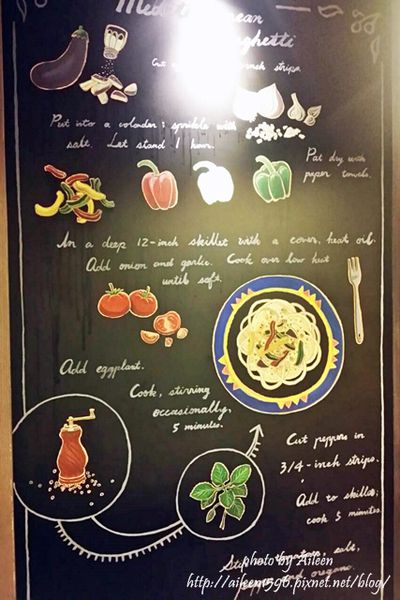 Mediterranean
Spaghetti
Cut
strips
Put into a colander; sprinkle with
salt. Let stand 1 hour.
Pat dry with
paper towels.
In a deep 12-inch skillet with a cover, heat oil.
Add onion and garlic. Cook over low heat
until soft.
Add eggplant.
Cook, stirring
occasionally,
5 minutes.
Cut peppers in
3/4-inch strips.
Add to skillet;
cook 5 minutes.
tomatoes, salt,
and oregano.
photo by Aileen
http://aileen1596.pixnet.net/blog/